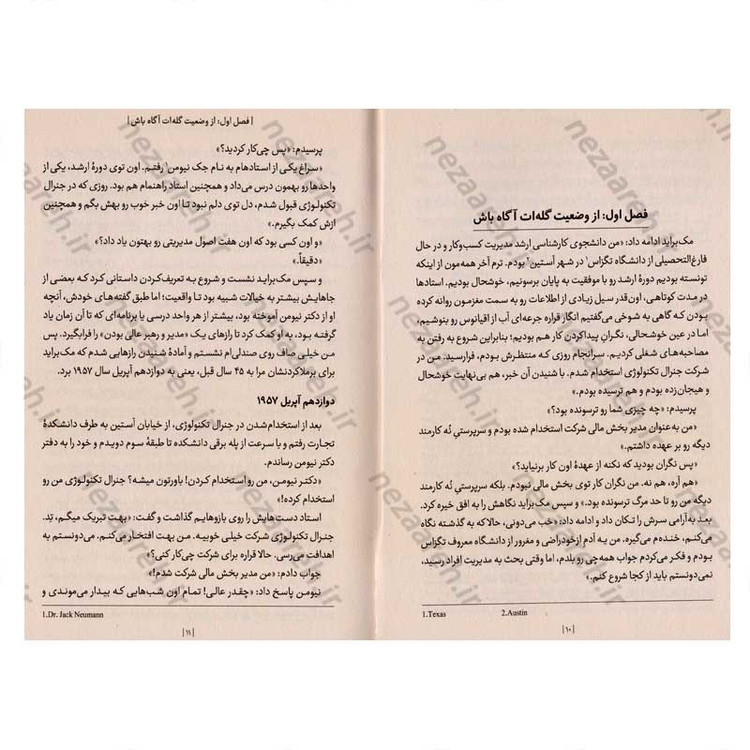 فصل اول: از وضعیت گله‌ات آگاه باش
مک‌براید ادامه داد: «من دانشجوی کارشناسی ارشد مدیریت کسب‌وکار و در حال
فارغ‌التحصیلی از دانشگاه تگزاس¹ در شهر آستین² بودم. ترم آخر همه‌مون از اینکه
تونسته بودیم دورهٔ ارشد رو با موفقیت به پایان برسونیم، خوشحال بودیم. استادها
در مدت کوتاهی، اون‌قدر سیل زیادی از اطلاعات رو به سمت مغزمون روانه کرده
بودن که گاهی به شوخی می‌گفتیم انگار قراره جرعه‌ای آب از اقیانوس رو بنوشیم،
اما در عین خوشحالی، نگرانِ پیداکردن کار هم بودیم؛ بنابراین شروع به رفتن به
مصاحبه‌های شغلی کردیم. سرانجام روزی که منتظرش بودم، فرارسید. من در
شرکت جنرال تکنولوژی استخدام شدم. با شنیدن آن خبر، هم بی‌نهایت خوشحال
و هیجان‌زده بودم و هم ترسیده بودم.»
پرسیدم: «چه چیزی شما رو ترسونده بود؟»
«من به‌عنوان مدیر بخش مالی شرکت استخدام شده بودم و سرپرستیِ نُه کارمند
دیگه رو بر عهده داشتم.»
«پس نگران بودید که نکنه از عهدهٔ اون کار برنیاید؟»
«هم آره، هم نه. من نگران کار توی بخش مالی نبودم. بلکه سرپرستیِ نُه کارمند
دیگه من رو تا حد مرگ ترسونده بود.» و سپس مک براید نگاهش را به افق خیره کرد.
بعد به‌آرامی سرش را تکان داد و ادامه داد: «خب می‌دونی، حالا که به گذشته نگاه
می‌کنم، خنده‌م می‌گیره. من یه آدم ازخودراضی و مغرور از دانشگاه معروف تگزاس
بودم و فکر می‌کردم جواب همه‌چی رو بلدم، اما وقتی بحث به مدیریت افراد رسید،
نمی‌دونستم باید از کجا شروع کنم.»
1.Texas 2.Austin
|۱۰|
|فصل اول: از وضعیت گله‌ات آگاه باش|
پرسیدم: «پس چی‌کار کردید؟»
«سراغ یکی از استادهام به نام جک نیومن¹ رفتم. اون توی دورهٔ ارشد، یکی از
واحدها رو بهمون درس می‌داد و همچنین استاد راهنمام هم بود. روزی که در جنرال
تکنولوژی قبول شدم، دل توی دلم نبود تا اون خبر خوب رو بهش بگم و همچنین
ازش کمک بگیرم.»
«و اون کسی بود که اون هفت اصول مدیریتی رو بهتون یاد داد؟»
«دقیقاً.»
و سپس مک‌براید نشست و شروع به تعریف‌کردن داستانی کرد که بعضی از
جاهایش بیشتر به خیالات شبیه بود تا واقعیت؛ اما طبق گفته‌های خودش، آنچه
او از دکتر نیومن آموخته بود، بیشتر از هر واحد درسی یا برنامه‌ای که تا آن زمان یاد
گرفته بود، به او کمک کرد تا رازهای یک «مدیر و رهبر عالی بودن» را فرابگیرد. پس
من خیلی صاف روی صندلی‌ام نشستم و آمادهٔ شنیدن رازهایی شدم که مک براید
برای برملاکردنشان مرا به ۴۵ سال قبل، یعنی به دوازدهم آپریل سال ۱۹۵۷ برد.
دوازدهم آپریل ۱۹۵۷
بعد از استخدام‌شدن در جنرال تکنولوژی، از خیابان آستین به طرف دانشکدهٔ
تجارت رفتم و با سرعت از پله برقی دانشکده تا طبقهٔ سوم دویدم و خود را به دفتر
دکتر نیومن رساندم.
«دکتر نیومن، من رو استخدام کردن! باورتون میشه؟ جنرال تکنولوژی من رو
استخدام کرده!»
استاد دست‌هایش را روی بازوهایم گذاشت و گفت: «بهت تبریک میگم، تِد.
جنرال تکنولوژی شرکت خیلی خوبیه. من بهت افتخار می‌کنم. می‌دونستم به
اهدافت می‌رسی. حالا قراره برای شرکت چی‌کار کنی؟»
جواب دادم: «من مدیر بخش مالی شرکت شدم!»
نیومن پاسخ داد: «چقدر عالی! تمام اون شب‌هایی که بیدار می‌موندی و
1.Dr. Jack Neumann
|۱۱|
nezaareh.ir